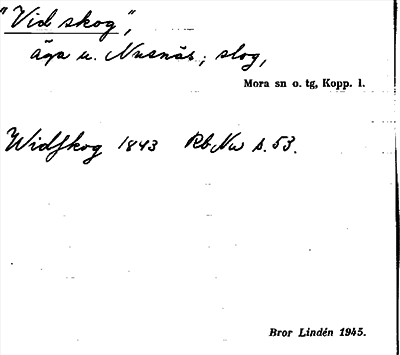 "Vid skog",
äga u. Nusnäs; slog,
Mora sn o. tg, Kopp. l.
Widskog 1843 Rb Nw s. 53.
Bror Lindén 1945.